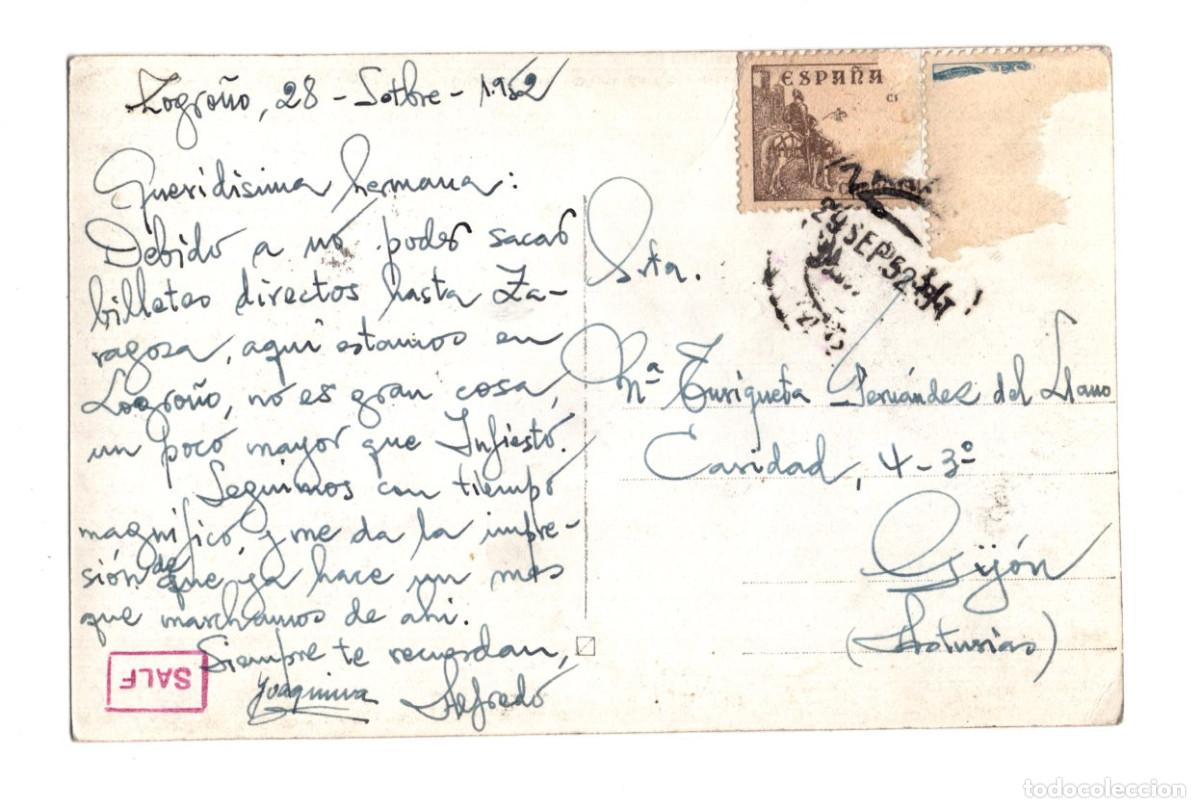 Logroño, 28 - Setbre - 1952
Queridisima hermana:
Debido a no poder sacar
billetes directos hasta Za-
ragoza, aqui estamos en
Logroño, no es gran cosa,
un poco mayor que Infiesto.
Seguimos con tiempo
magnifico, y me da la impre-
sión de que ya hace un mes
que marchamos de ahi.
Siempre te recuerdan,
Joaquina Alfredo
SALF
ESPAÑA
29 SEP 52
Srta.
Mª Enriqueta Fernández del Llano
Caridad, 4-3º
Gijón
(Asturias)
todocoleccion